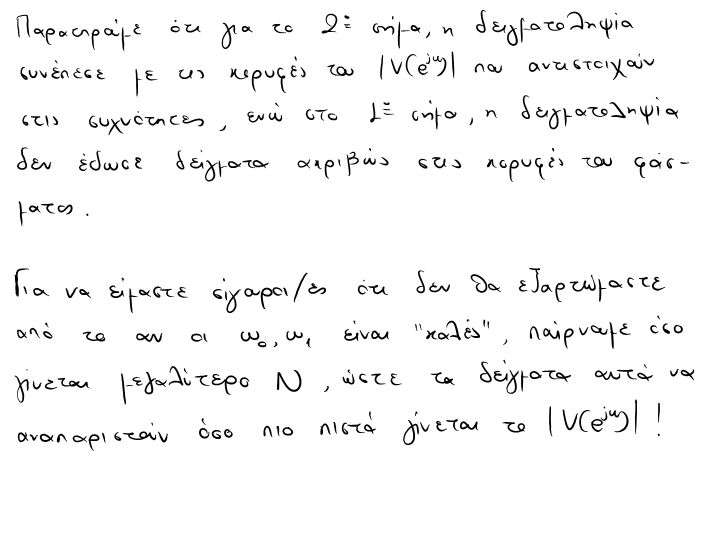 Παρατηράμε ότι για το 2º σήμα, η δειγματοληψία
συνέπεσε με τις κορυφές του |V(e^{jω})| που αντιστοιχούν
στις συχνότητες, ενώ στο 1º σήμα, η δειγματοληψία
δεν έδωσε δείγματα ακριβώς στις κορυφές του φάσ-
ματος.
Για να είμαστε σίγουροι/ες ότι δεν θα εξαρτώμαστε
από το αν οι ω₀, ω₁ είναι "καλές", παίρνουμε όσο
γίνεται μεγαλύτερο N, ώστε τα δείγματα αυτά να
αναπαριστούν όσο πιο πιστά γίνεται το |V(e^{jω})| !